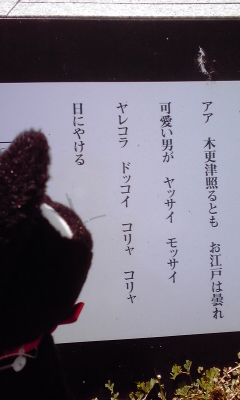 アア　木更津照るとも　お江戸は曇れ
可愛い男が　ヤッサイ　モッサイ
ヤレコラ　ドッコイ　コリャ　コリャ
日にやける